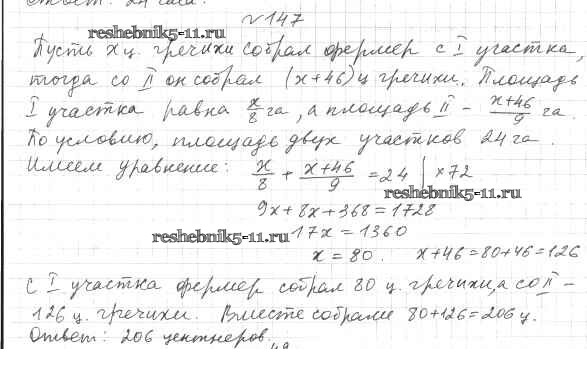 Ответ: 24 часа.
№147
reshebnik5-11.ru
Пусть x ц. гречихи собрал фермер с I участка,
тогда со II он собрал (x+46) ц гречихи. Площадь
I участка равна x/8 га, а площадь II – x+46/9 га.
По условию, площадь двух участков 24 га.
Имеем уравнение: x/8 + x+46/9 = 24 | ×72
reshebnik5-11.ru
9x+8x+368=1728
reshebnik5-11.ru 17x=1360
x = 80. x+46=80+46=126
С I участка фермер собрал 80 ц. гречихи, а со II –
126 ц. гречихи. Вместе собрали 80+126=206 ц.
Ответ: 206 центнеров.